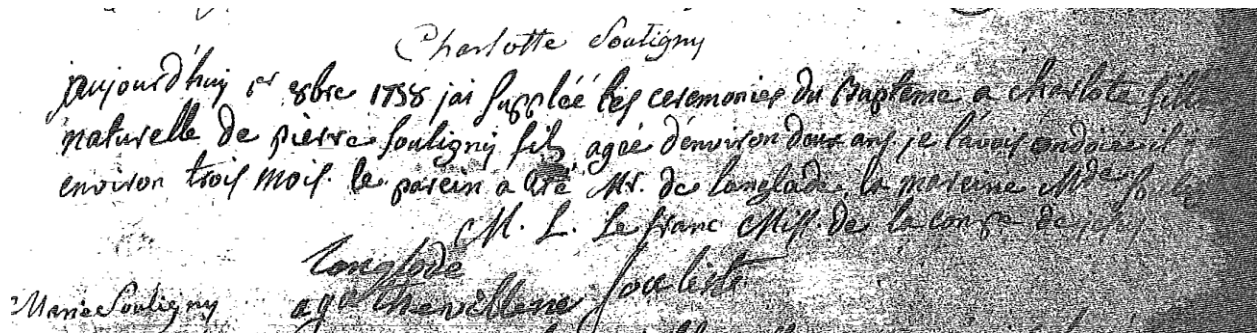 Charlotte Souligny
aujourd'huy 1er 8bre 1758 jai Supplée les ceremonies du Baptême a charlote fille
naturelle de pierre Souligny fils agée d'environ deux ans je l'avois ondoiée il
environ trois mois. le parein a eté Mr. de langlade la mareine Mde
M. L. Le franc Miss. de la comp. de jesus
Langlade
Marie Souligny agathe villeneuve Souliste